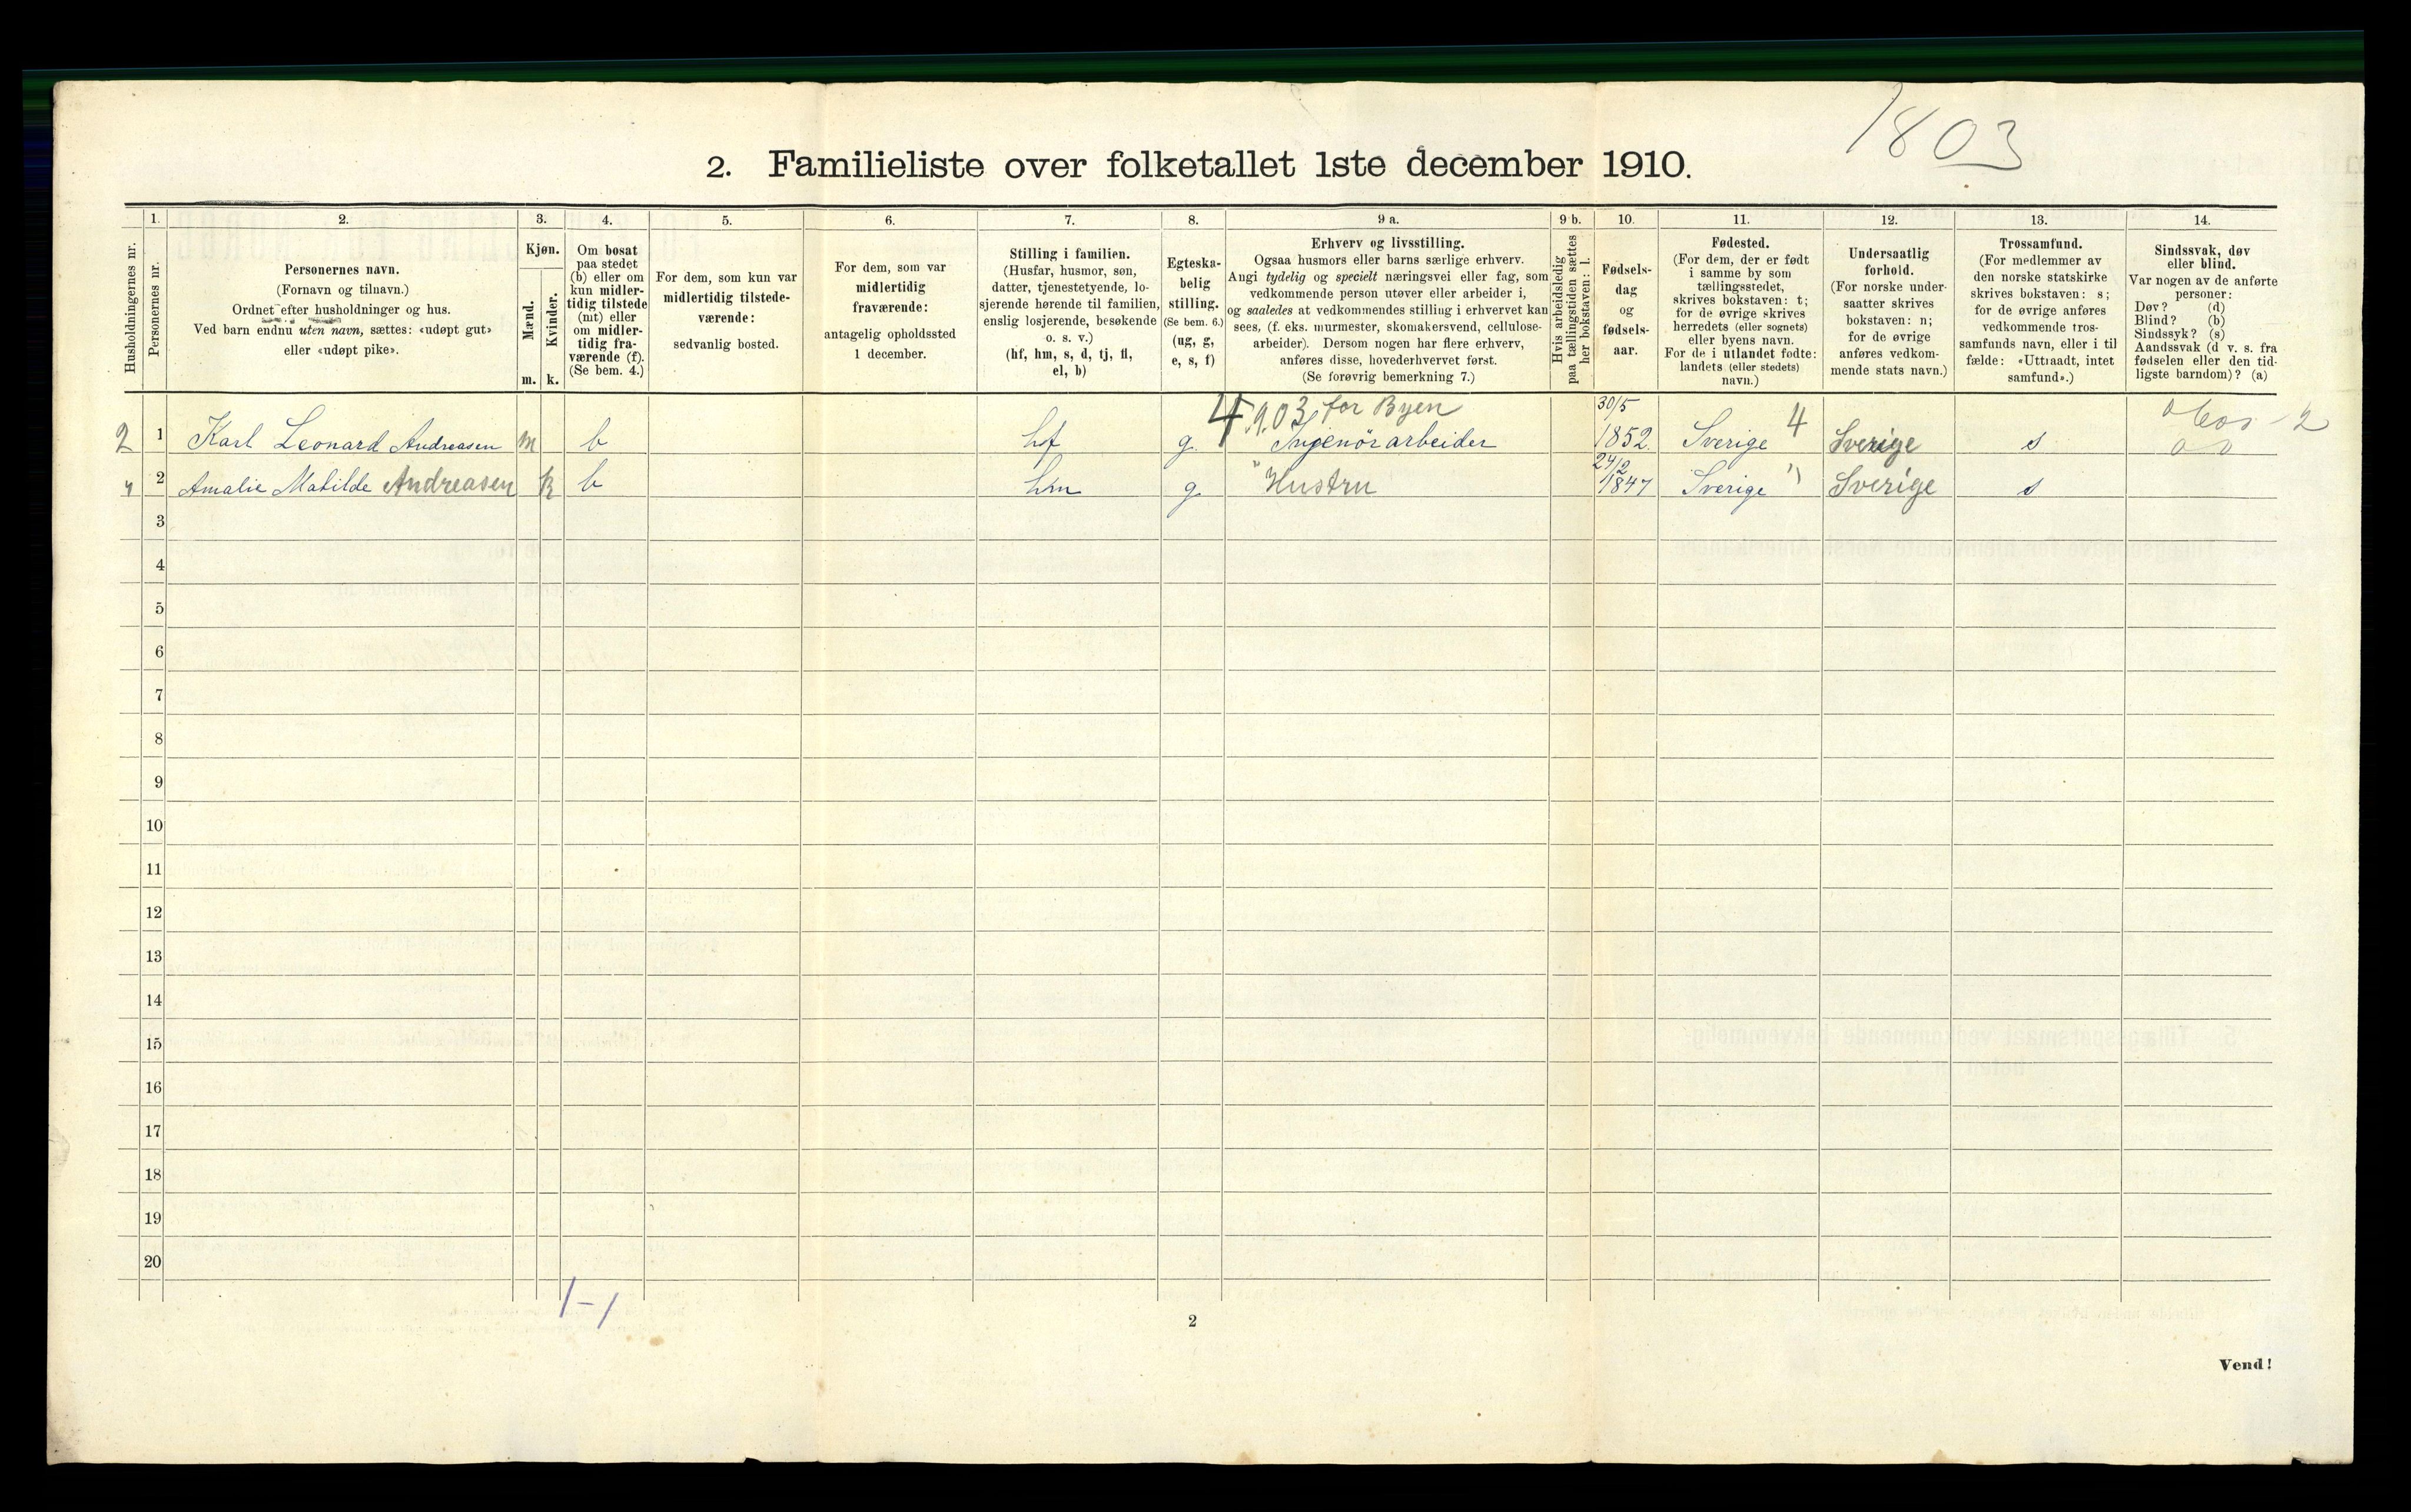 1803
2. Familieliste over folketallet 1ste december 1910.
Husholdningernes nr.
1.
Personernes nr.
2.
Personernes navn.
(Fornavn og tilnavn.)
Ordnet efter husholdninger og hus.
Ved barn endnu uten navn, sættes: «udøpt gut»
eller «udøpt pike».
3.
Kjøn.
Mænd.
m.
Kvinder.
k.
4.
Om bosat
paa stedet
(b) eller om
kun midler-
tidig tilstede
(mt) eller
om midler-
tidig fra-
værende (f).
(Se bem. 4.)
5.
For dem, som kun var
midlertidig tilstede-
værende:
sedvanlig bosted.
6.
For dem, som var
midlertidig
fraværende:
antagelig opholdssted
1 december.
7.
Stilling i familien.
(Husfar, husmor, søn,
datter, tjenestetyende, lo-
sjerende hørende til familien,
enslig losjerende, besøkende
o. s. v.)
(hf, hm, s, d, tj, fl,
el, b)
8.
Egteska-
belig
stilling.
(Se bem. 6.)
(ug, g,
e, s, f)
9 a.
Erhverv og livsstilling.
Ogsaa husmors eller barns særlige erhverv.
Angi tydelig og specielt næringsvei eller fag, som
vedkommende person utøver eller arbeider i,
og saaledes at vedkommendes stilling i erhvervet kan
sees, (f. eks. murmester, skomakersvend, cellulose-
arbeider). Dersom nogen har flere erhverv,
anføres disse, hovederhvervet først.
(Se forøvrig bemerkning 7.)
9 b.
Hvis arbeidsledig
paa tællingstiden sættes
her bokstaven: l.
10.
Fødsels-
dag
og
fødsels-
aar.
11.
Fødested.
(For dem, der er født
i samme by som
tællingsstedet,
skrives bokstaven: t;
for de øvrige skrives
herredets (eller sognets)
eller byens navn.
For de i utlandet fødte:
landets (eller stedets)
navn.)
12.
Undersaatlig
forhold.
(For norske under-
saatter skrives
bokstaven: n;
for de øvrige
anføres vedkom-
mende stats navn.)
13.
Trossamfund.
(For medlemmer av
den norske statskirke
skrives bokstaven: s;
for de øvrige anføres
vedkommende tros-
samfunds navn, eller i til
fælde: «Uttraadt, intet
samfund».)
14.
Sindssvak, døv
eller blind.
Var nogen av de anførte
personer:
Døv? (d)
Blind? (b)
Sindssyk? (s)
Aandssvak (d v. s. fra
fødselen eller den tid-
ligste barndom)? (a)
4.903, for Byen
2 1 Karl Leonard Andreasen m b hf g. Ingenörarbeider 30/5 1852. Sverige 4 Sverige s
2 Amalie Matilde Andreasen k b hm g. Hustru 24/2 1847 Sverige Sverige s
3
4
5
6
7
8
9
10
11
12
13
14
15
16
17
18
19
20
1-1
2
Vend!